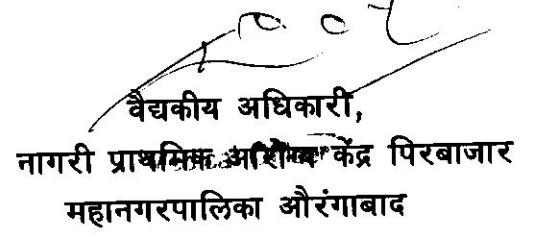 वैद्यकीय अधिकारी,
नागरी प्राथमिक आरोग्य केंद्र पिरबाजार
महानगरपालिका औरंगाबाद